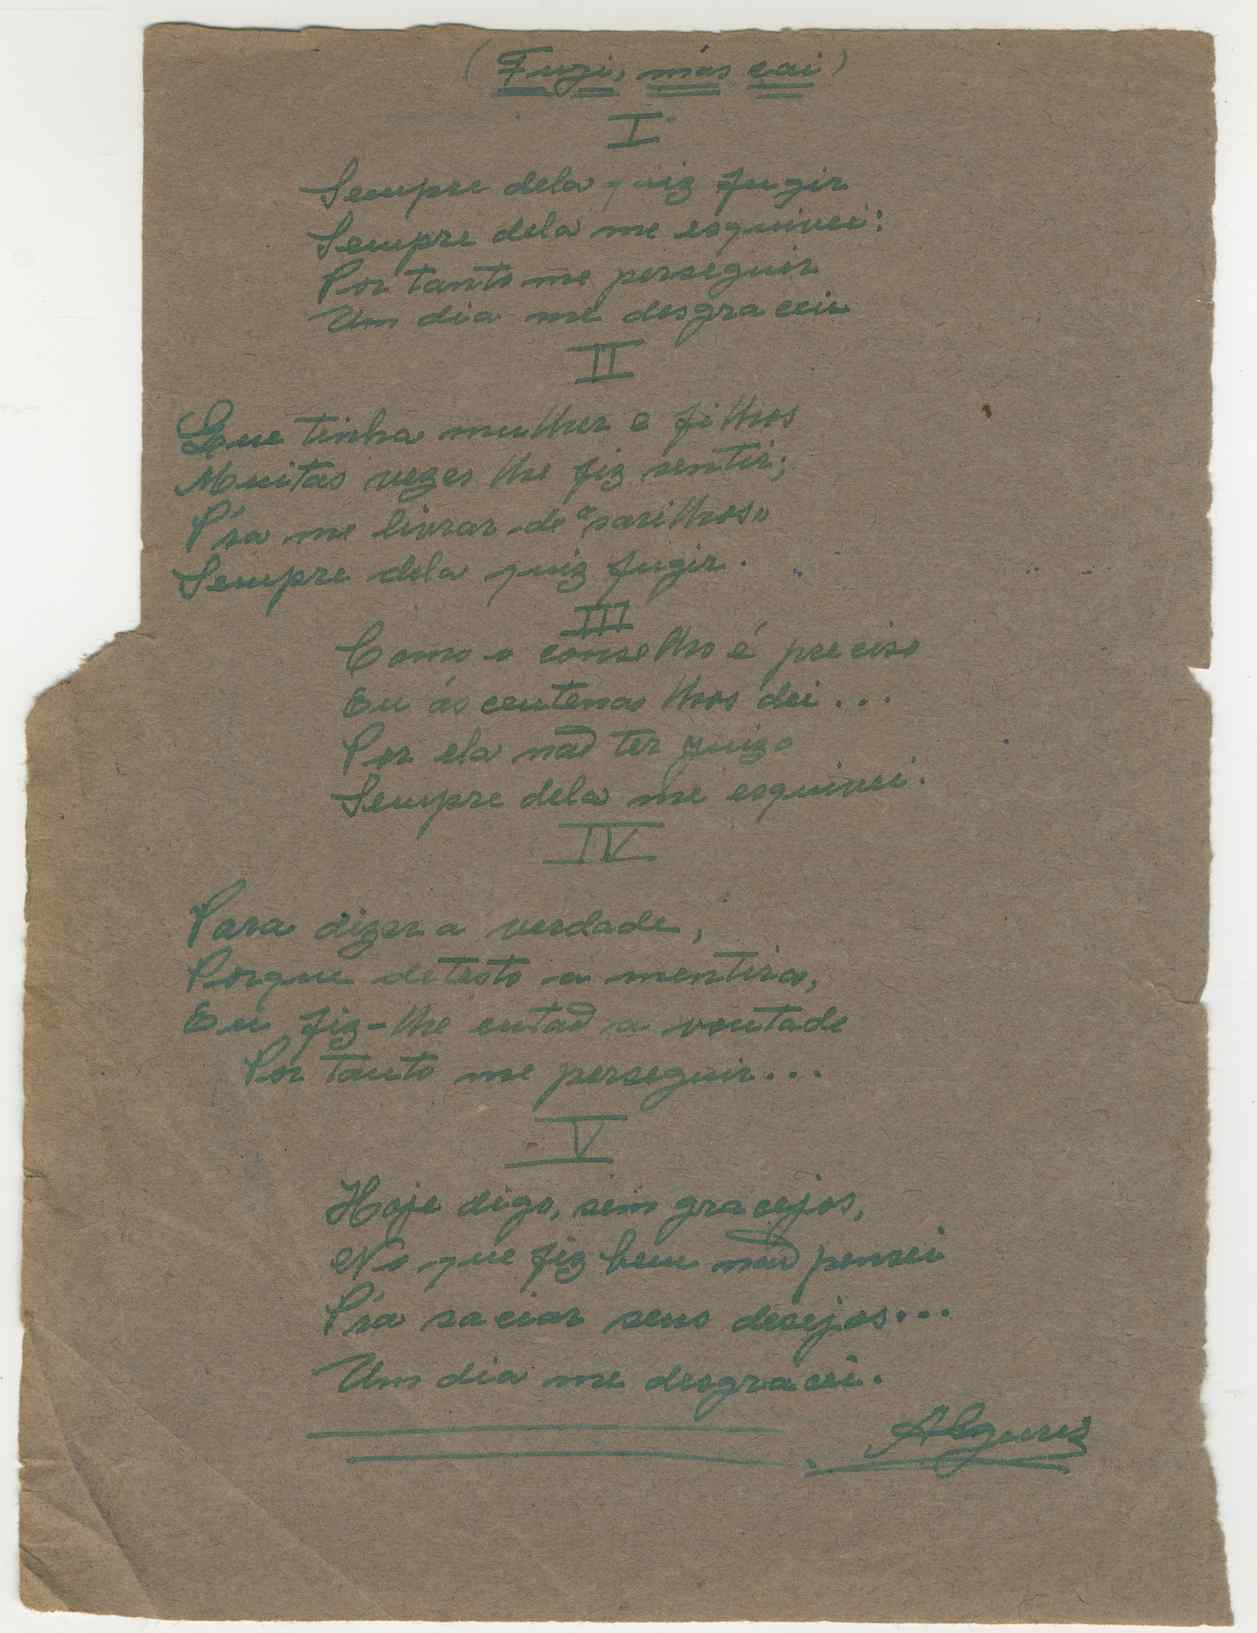 (Fugi, más caí)
I
Sempre dela quiz fugir
Sempre dela me esquivei:
Por tanto me perseguir
Um dia me desgracei.
II
Que tinha mulher e filhos
Muitas vezes lhe fiz sentir;
P'ra me livrar de "sarilhos"
Sempre dela quiz fugir.
III
Como o conselho é preciso
Eu ás centenas lhos dei...
Por ela não ter juizo
Sempre dela me esquivei.
IV
Para dizer a verdade,
Porque detesto a mentira,
Eu fiz-lhe então a vontade
Por tanto me perseguir...
V
Hoje digo, sem gracejos,
No que fiz bem não pensei
P'ra saciar seus desejos...
Um dia me desgracei.